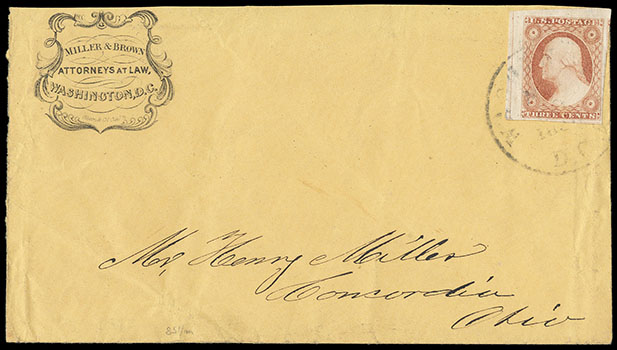 MILLER & BROWN
ATTORNEYS AT LAW,
WASHINGTON, D.C.
U.S. POSTAGE
THREE CENTS
D.C.
Mr. Henry Miller
Concordia
Ohio